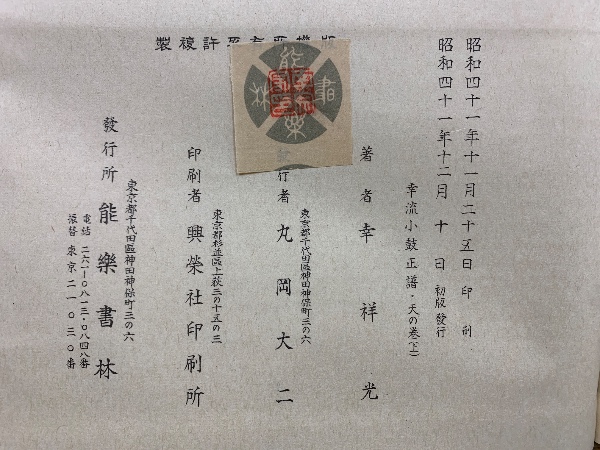 昭和四十一年十一月二十五日 印刷
昭和四十一年十二月 十 日 初版發行
幸流小鼓正譜・天の巻(上)
著者 幸祥光
東京都千代田區神田神保町三の六
行者 丸岡大二
東京都杉並區上荻三の十五の三
印刷者 興榮社印刷所
東京都千代田區神田神保町三の六
發行所 能樂書林
電話 二六一・〇八一三・〇八四八番
振替 東京二一〇三〇番
許複製
能樂書林